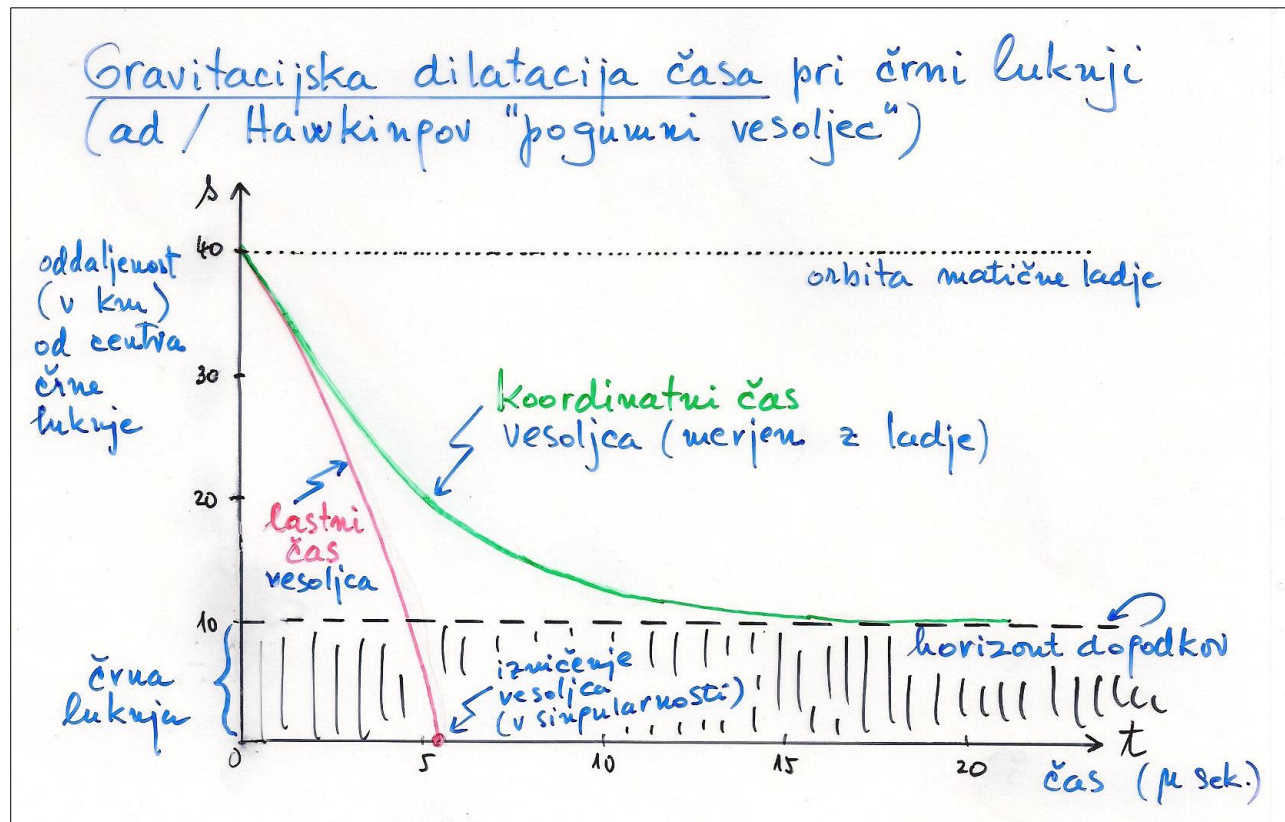 Gravitacijska dilatacija časa pri črni luknji
(ad / Hawkingov "pogumni vesoljec")
s
40
oddaljenost
(v km)
od centra
črne
luknje
orbita matične ladje
30
koordinatni čas
vesoljca (merjen z ladje)
20
lastni
čas
vesoljca
10
horizont dogodkov
črna
luknja
izničenje
vesoljca
(v singularnosti)
0
5
10
15
20
t
čas (μ sek.)